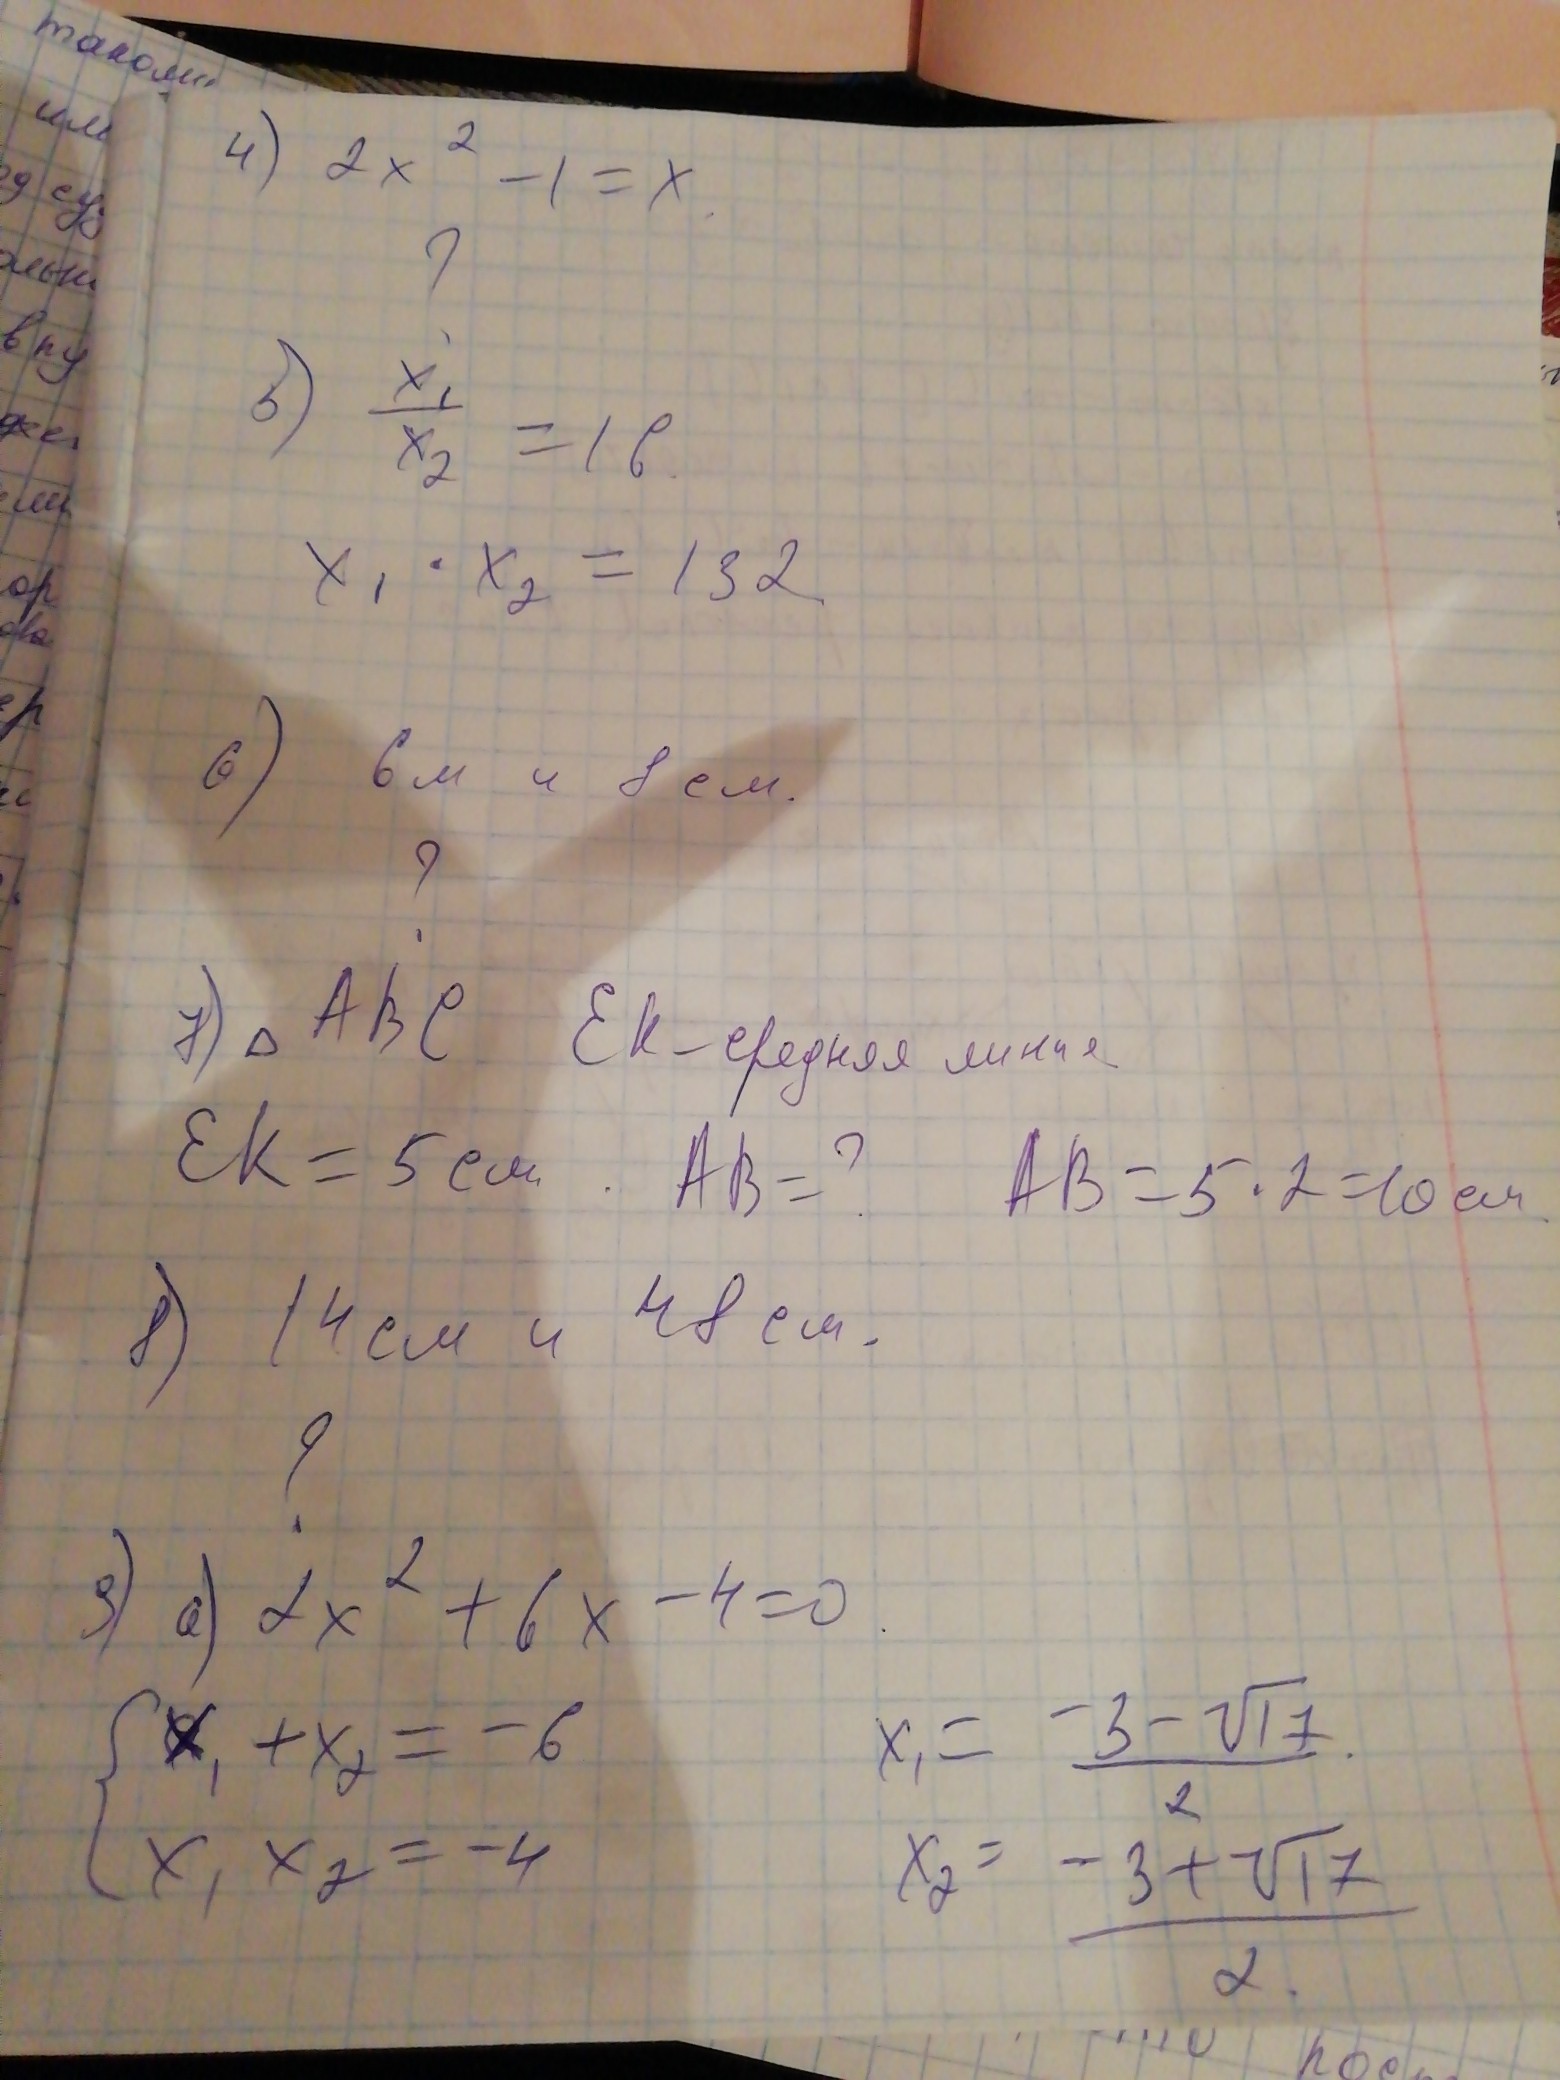 такомы
им
4) 2x² -1 = x.
?
5) x₁/x₂ = 16.
x₁ · x₂ = 132
6) 6м и 8 см.
?
7) △ ABC EK - средняя линия
EK = 5 см. AB = ? AB = 5 · 2 = 10 см.
8) 14 см и 48 см.
?
9) a) 2x² + 6x - 4 = 0.
{ x₁ + x₂ = -6 x₁ = (-3 - √17)/2.
x₁ x₂ = -4 x₂ = (-3 + √17)/2.